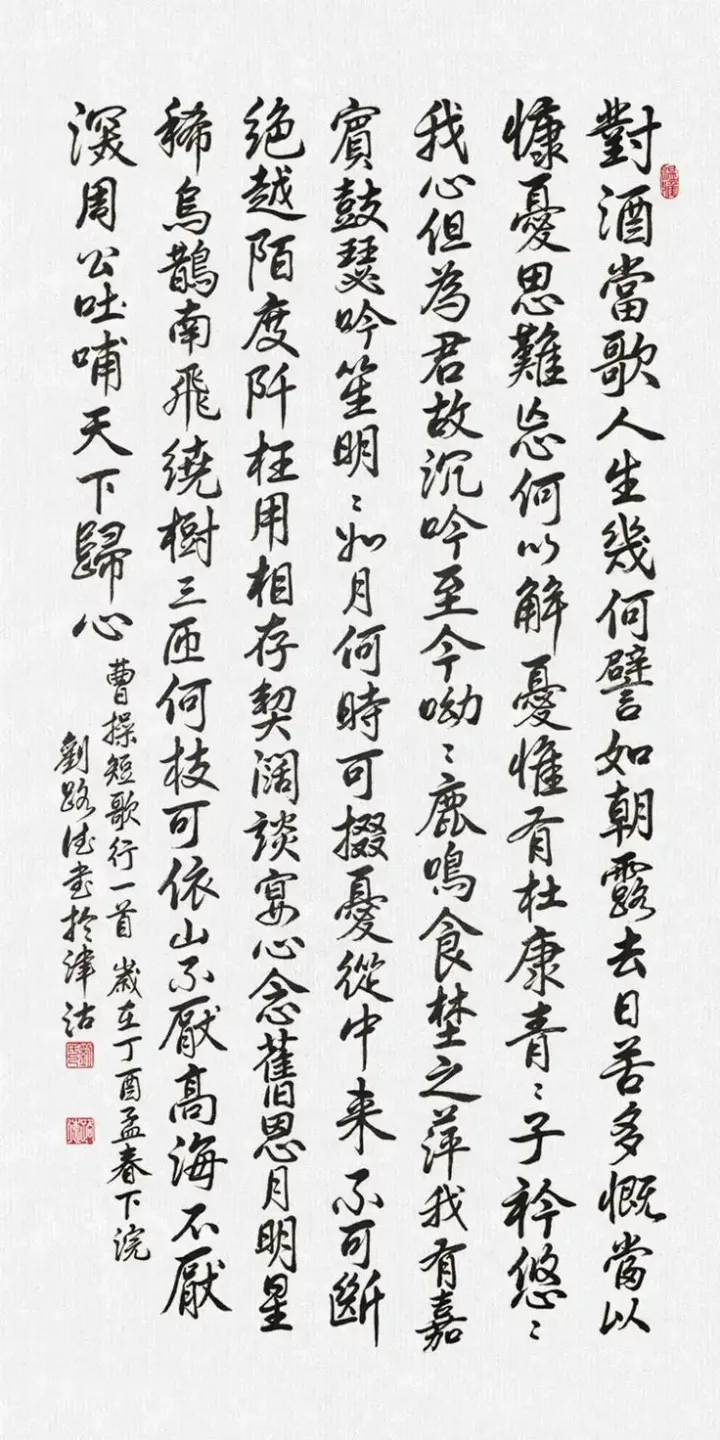 對酒當歌人生幾何譬如朝露去日苦多慨當以
慷憂思難忘何以解憂惟有杜康青〻子衿悠〻
我心但為君故沉吟至今呦〻鹿鳴食埜之萍我有嘉
賓鼓瑟吟笙明〻如月何時可掇憂從中来不可斷
绝越陌度阡枉用相存契闊談宴心念舊恩月明星
稀烏鵲南飛繞樹三匝何枝可依山不厭高海不厭
深周公吐哺天下歸心
曹操短歌行一首 歲在丁酉孟春下浣
劉路書於津沽